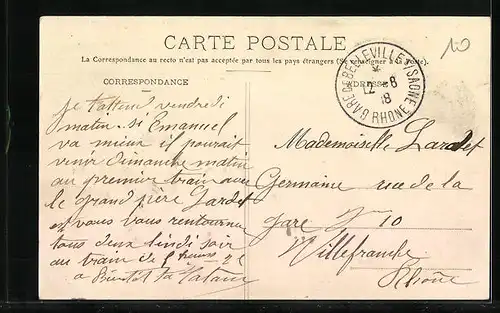 CARTE POSTALE
La Correspondance au recto n'est pas acceptée par tous les pays étrangers (Se renseigner à la Poste).
CORRESPONDANCE
ADRESSE
GARE DE BELLEVILLE S/SAONE
12-8
18
RHONE
10
je t'attend vendredi
matin si Emanuel
va mieux il pourait
venir Dimanche matin
au premier train avec
le grand père Lardet
et vous vous retourne
tous deux lindi soir
au train de heures
a Bientot ta
Mademoiselle Lardet
Germaine rue de la
gare N 10
Villefranche
Rhône